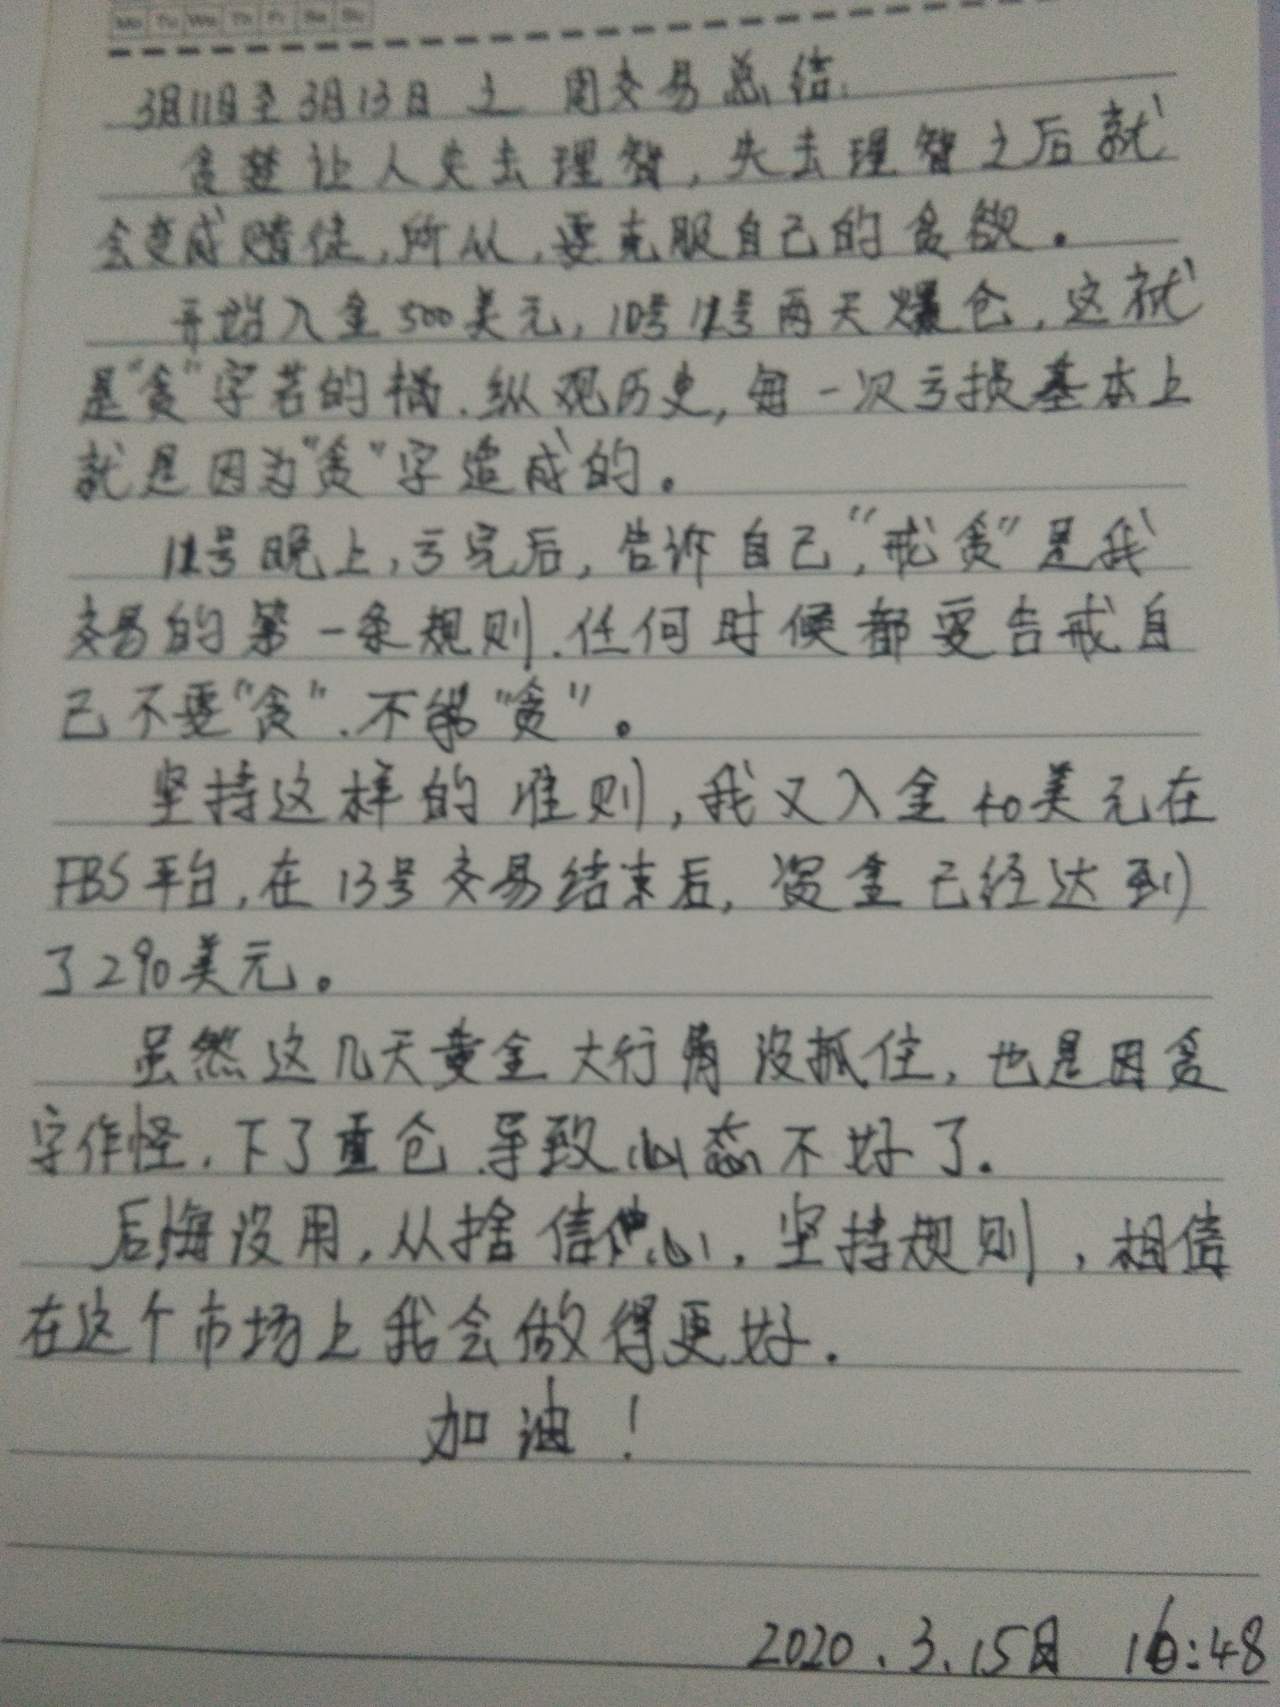 Mo Tu We Th Fr Sa Su
3月11日至3月13日 之 周交易总结.
贪婪让人失去理智,失去理智之后就
会变成赌徒,所以,要克服自己的贪欲。
开始入金500美元,10号12号两天爆仓,这就
是"贪"字若的祸.纵观历史,每一次亏损基本上
就是因为"贪"字造成的。
12号晚上,亏完后,告诉自己,"戒贪"是我
交易的第一条规则.任何时候都要告戒自
己不要"贪".不能"贪"。
坚持这样的准则,我又入金40美元在
FBS平台,在13号交易结束后,资金已经达到
了290美元。
虽然这几天黄金大行情没抓住,也是因贪
字作怪.下了重仓.导致心态不好了.
后悔没用,从拾信心,坚持规则,相信
在这个市场上我会做得更好.
加油!
2020.3.15日 16:48